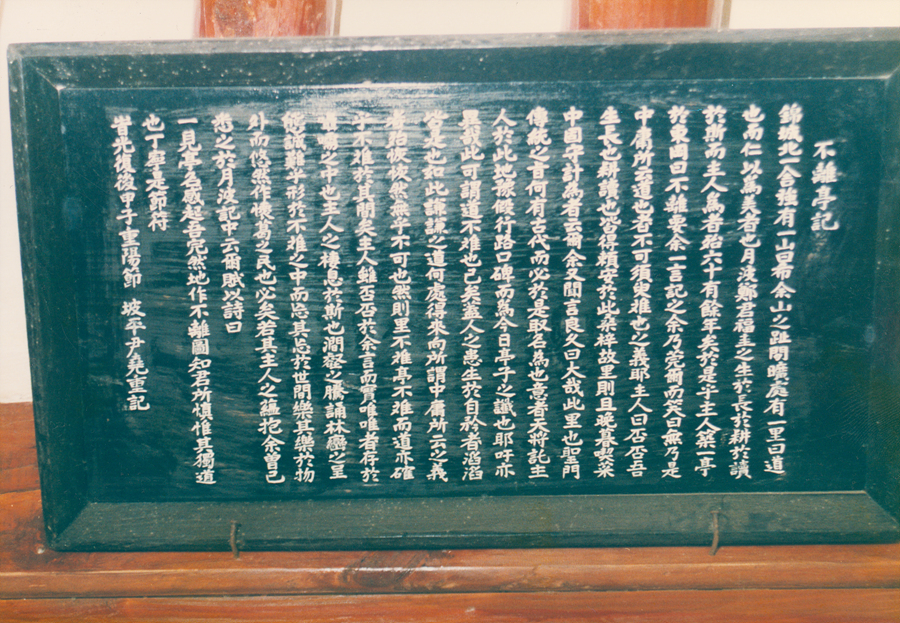 不離亭記
錦城北一舍強有一山曰希余山之趾開曠處有一里曰道
也而仁以爲美者也月淀鄭君福圭之生於長於耕於讀
於斯而主人爲者殆六十有餘年矣於是乎主人築一亭
於東岡曰不離要余一言記之余乃莞爾而笑曰無乃是
中庸所云道也者不可須臾離也之義耶主人曰否否吾
生長也耕讀也皆得賴安於此桑梓故里則且晚暮喫菜
中園字計爲者云爾余又間言良久曰大哉此里也聖門
傳統之旨何有古代而必於是取名爲也意者天將託主
人於此地豫俟行路口碑而爲今日亭子之讖也耶吁亦
異哉此可謂道不離也已矣蓋人之患生於自矜者滔滔
皆是也和此謙謙之道何處得來向所謂中庸所云之義
者恢恢然無乎不可也然則里不離亭不離而道亦確
乎不離於其間矣主人雖否否於余言而實唯唯者存於
之中也主人之棲息於斯也澗壑之騰誦林巒之呈
態誠難乎形於不離之中而忘其忘於世間樂其樂於物
外而悠然作懷葛之民也必矣若其主人之蘊抱余曾已
悉之於月淀記中云爾賦以詩曰
一見亭名感起吾宛然地作不離圖知君所愼惟其獨道
也丁寧是節符
昔光復後甲子重陽節 坡平尹堯重記